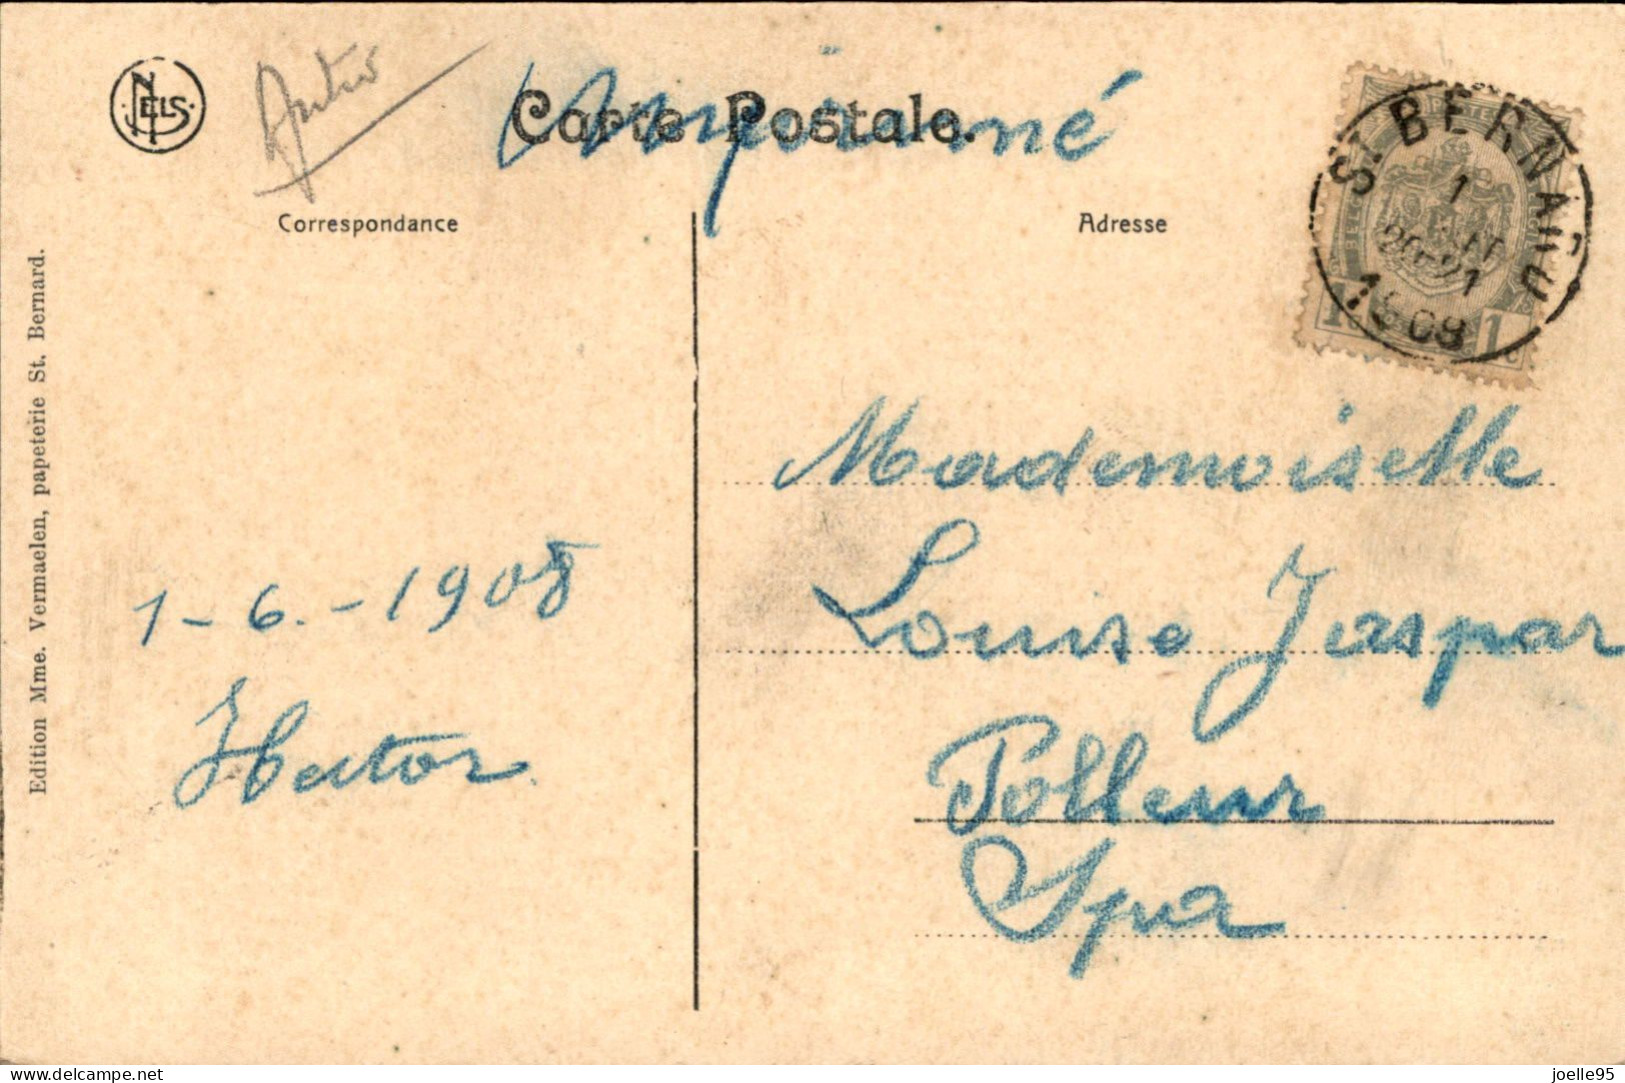 NELS
Imprimé
Carte Postale.
Correspondance
Adresse
ST BERNARD
1
20-21
1908
1c 1c
Edition Mme. Vermaelen, papeterie St. Bernard.
Mademoiselle
Louise Jaspar
Polleur
Spa
1-6.-1908
Hector
delcampe.net
joelle95